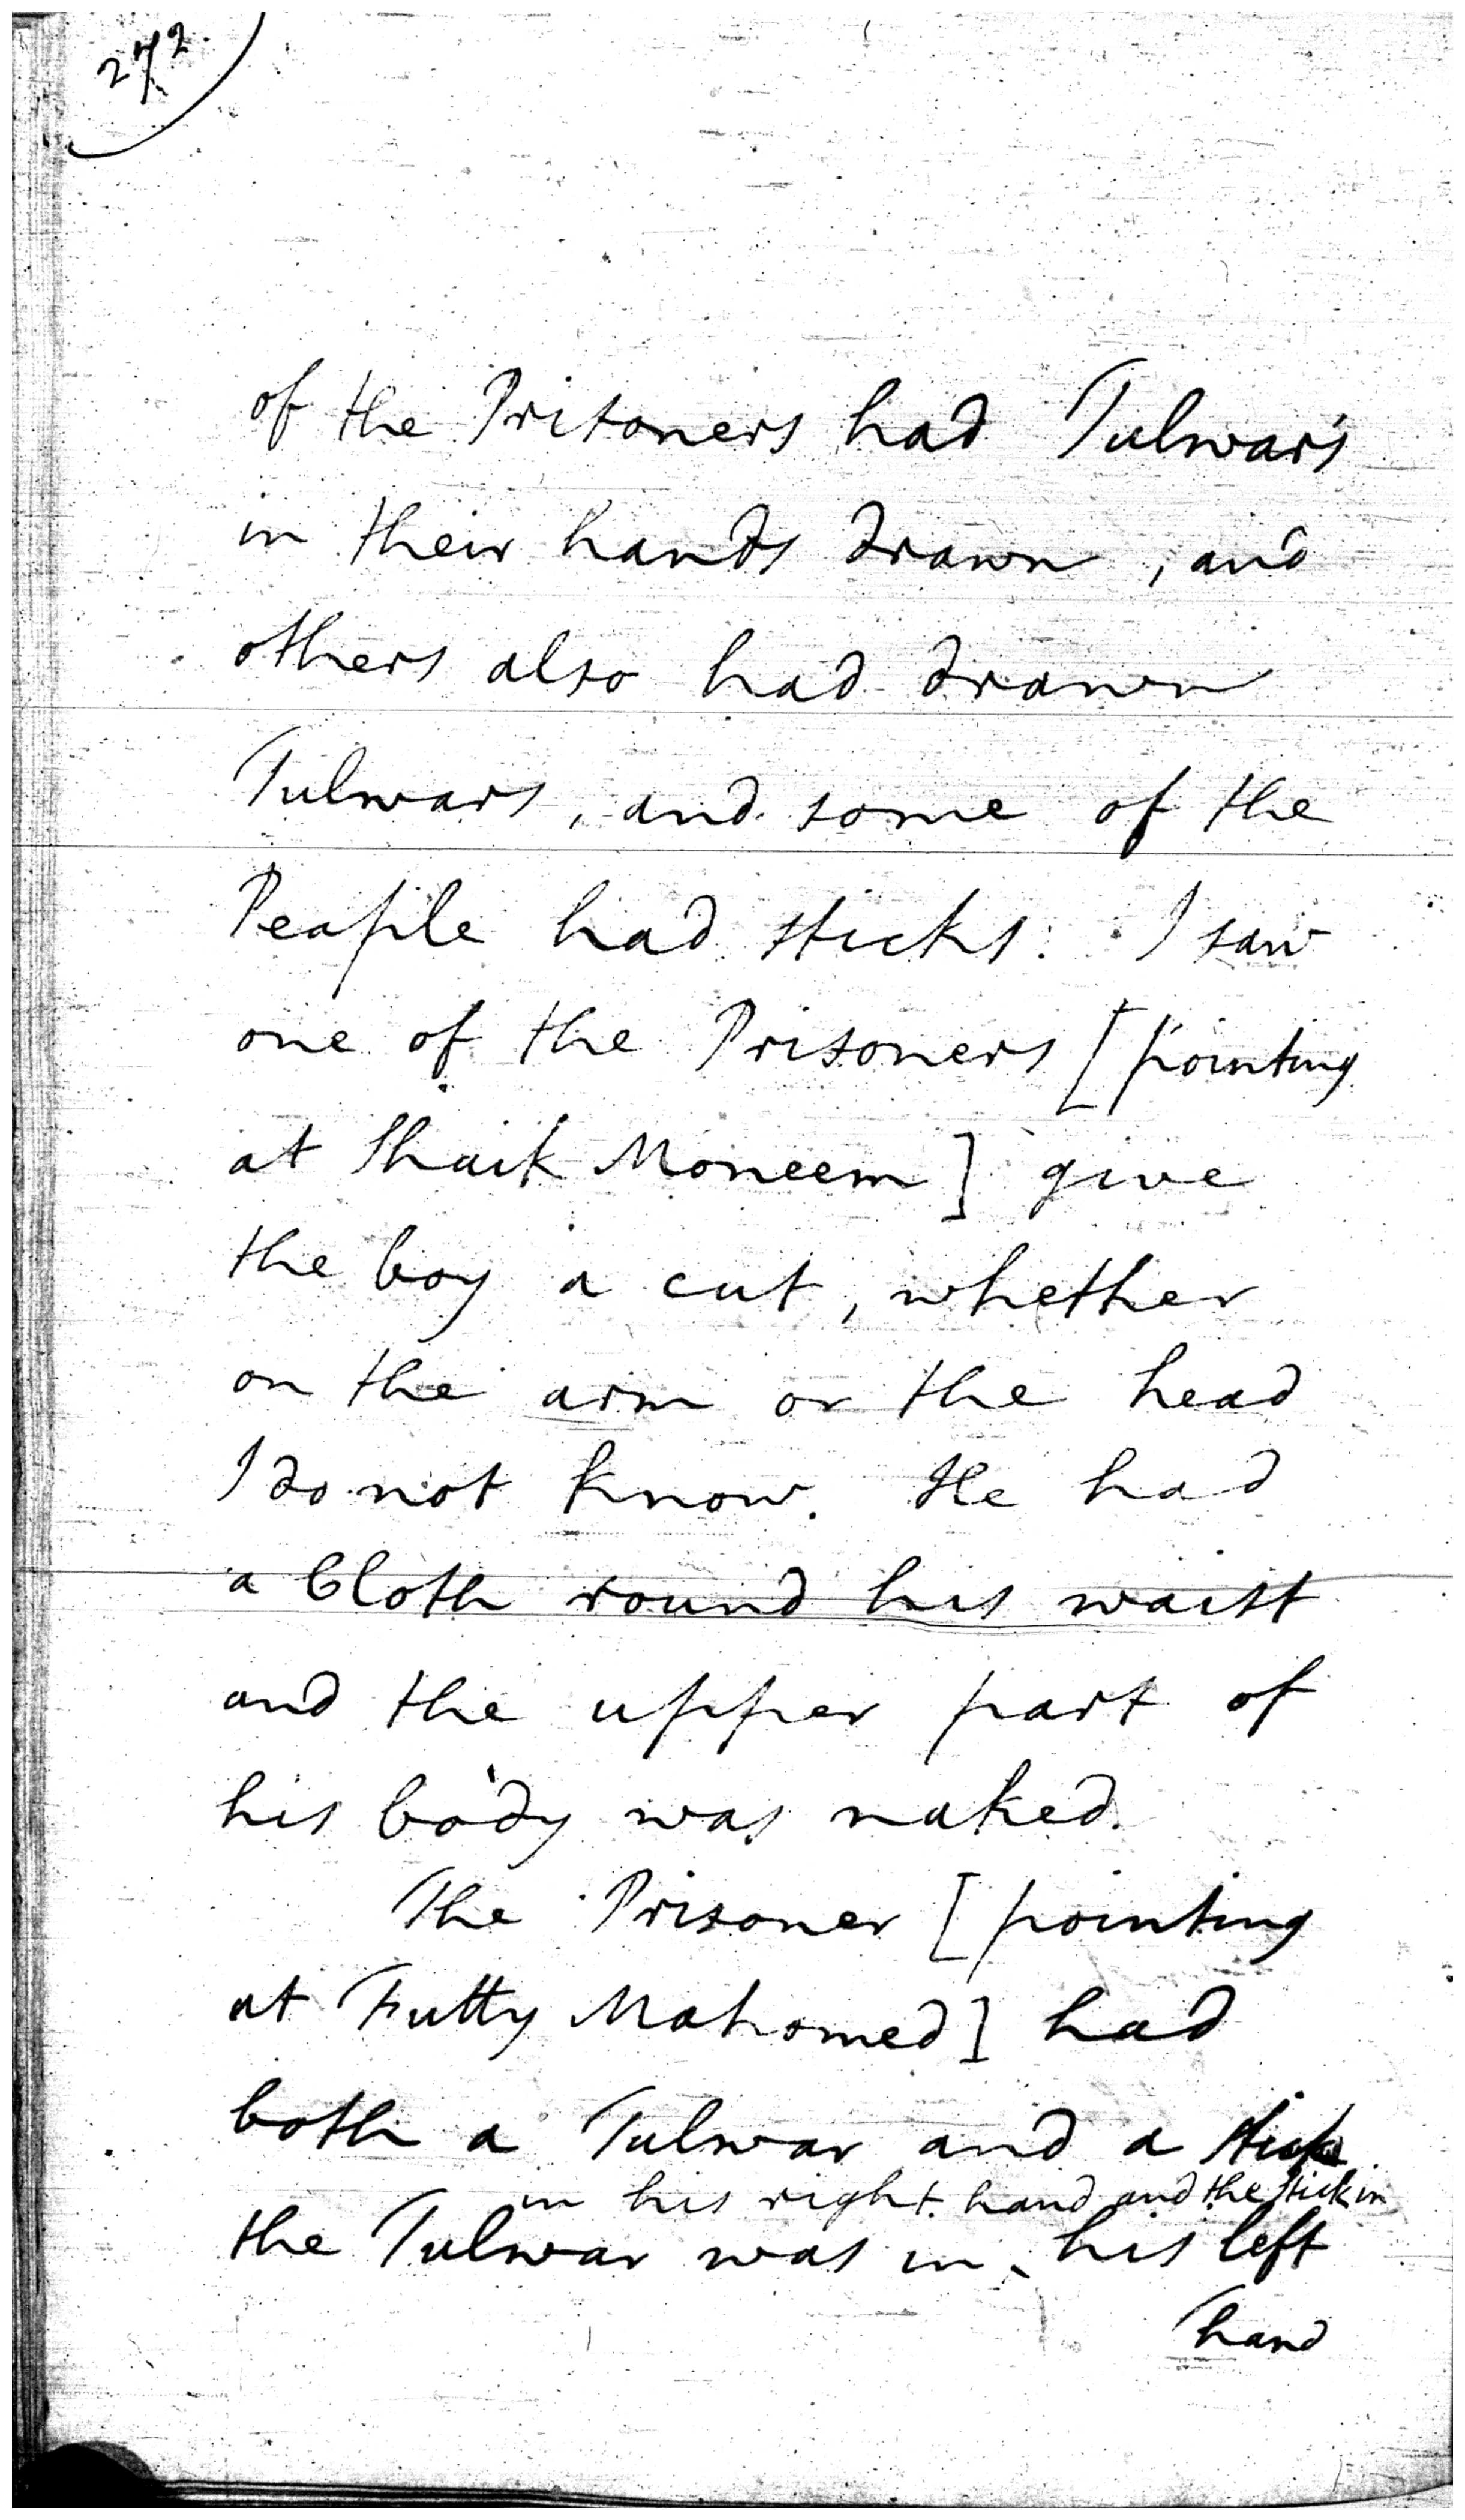 272.
of the Prisoners had Tulwars
in their hands drawn, and
others also had drawn
Tulwars, and some of the
People had sticks. I saw
one of the Prisoners [pointing
at Shaik Moneem] give
the boy a cut, whether
on the arm or the head
I do not know. He had
a Cloth round his waist
and the upper part of
his body was naked.
The Prisoner [pointing
at Futty Mahomed] had
both a Tulwar and a stick
in his right hand and the stick in
the Tulwar was in ‸ his left
hand